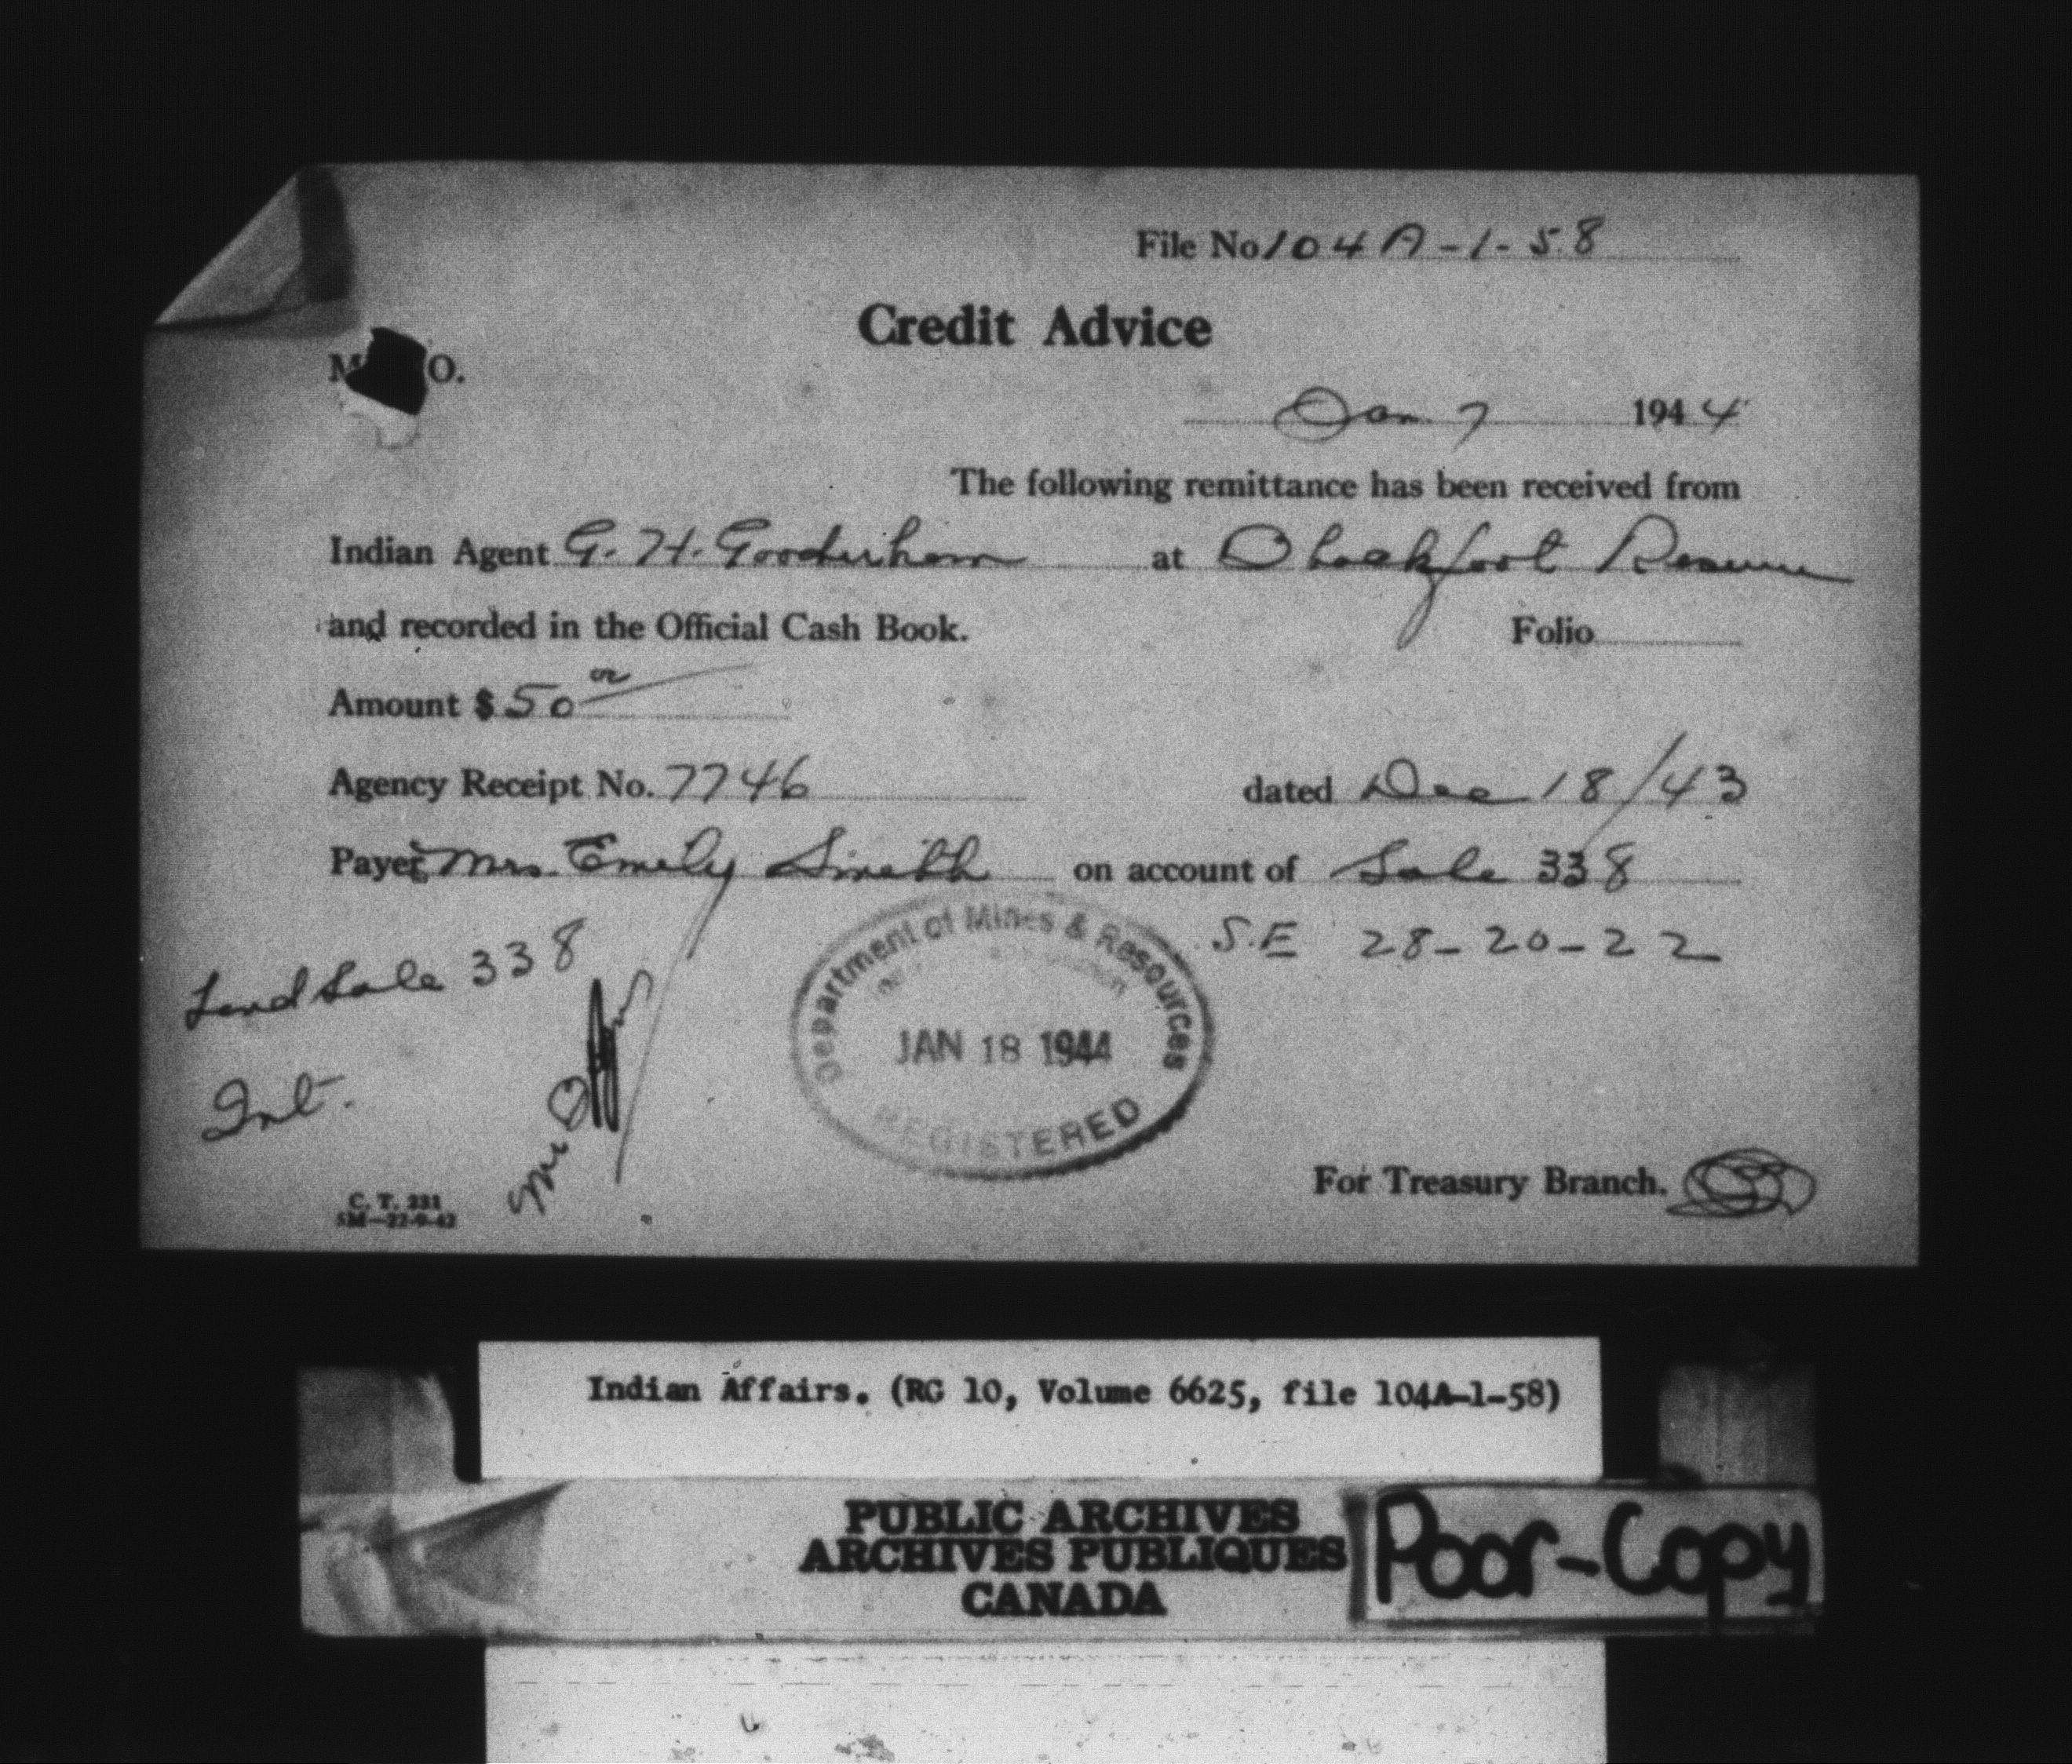 File No. 104A-1-58
Credit Advice
O.
Jan 7 1944
The following remittance has been received from
Indian Agent G. H. Gooderham at Blackfoot Reserve
and recorded in the Official Cash Book. Folio
Amount $ 50 00
Agency Receipt No. 7746 dated Dec 18/43
Payer Mrs. Emily Smith on account of Sale 338
S.E 28-20-22
Land Sale 338
Int.
Department of Mines & Resources
JAN 18 1944
REGISTERED
For Treasury Branch.
C. T. 231
5M—22-9-42
Indian Affairs. (RG 10, Volume 6625, file 104A-1-58)
PUBLIC ARCHIVES
ARCHIVES PUBLIQUES
CANADA
Poor-Copy